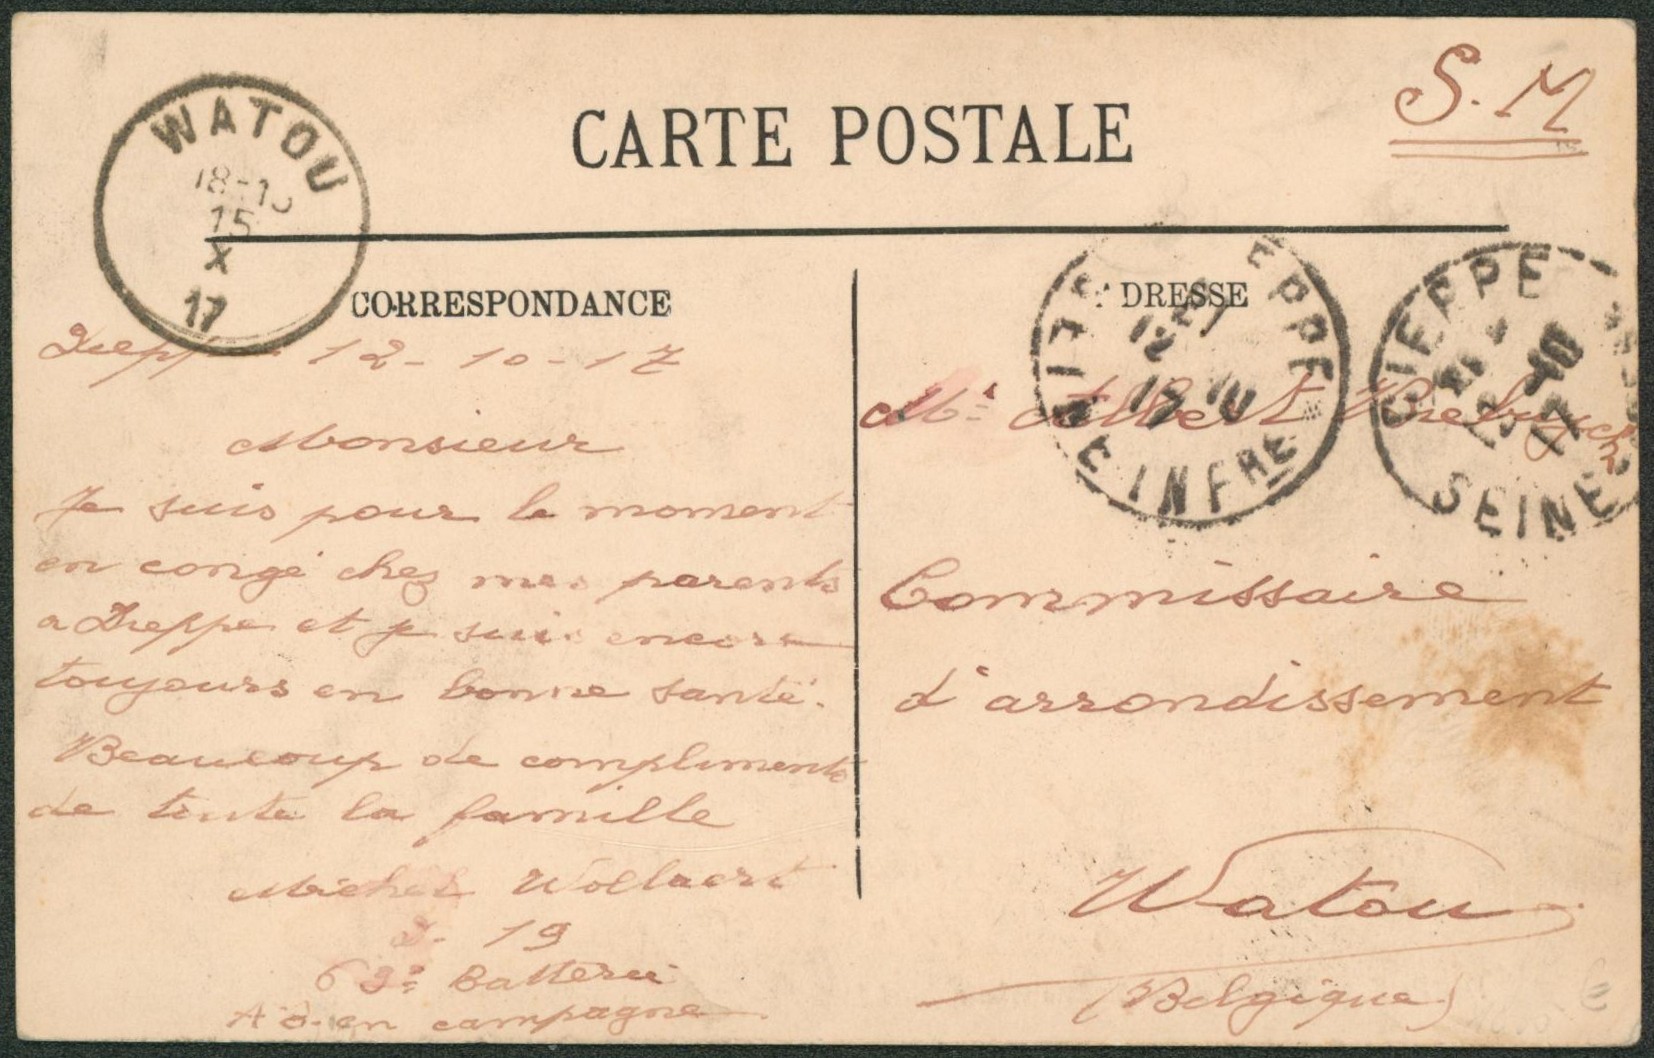 S. M
WATOU
18-1
15
X
17
CARTE POSTALE
CORRESPONDANCE
12-10-17
Monsieur
Je suis pour le moment
en congé chez mes parents
a Dieppe et je suis encore
toujours en bonne santé.
Beaucoup de compliments
de toute la famille
Michel Wollaert
D. 19
63e Batterie
A B. en campagne
DRESSE
EPPE
INFRE
DIEPPE
SEINE
Mr Albert
Commissaire
d'arrondissement
Watou
(Belgique)